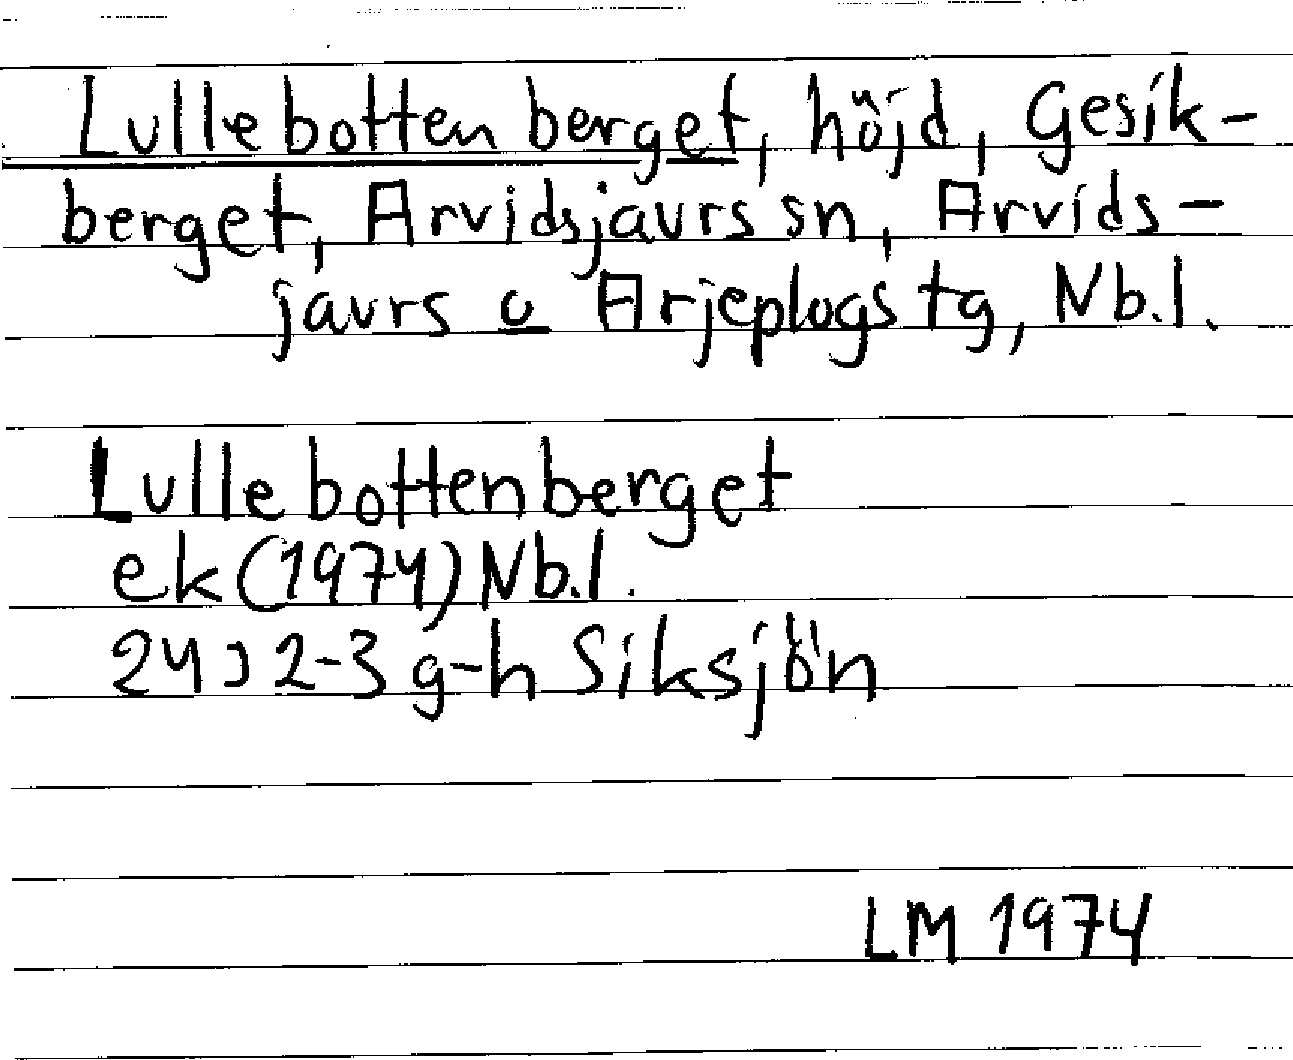 Lullebottenberget, höjd, Gesik-
berget, Arvidsjaurs sn, Arvids-
jaurs o Arjeplogs tg, Nb.l.
Lullebottenberget
ek (1974) Nb.l.
24J 2-3 g-h Siksjön
LM 1974